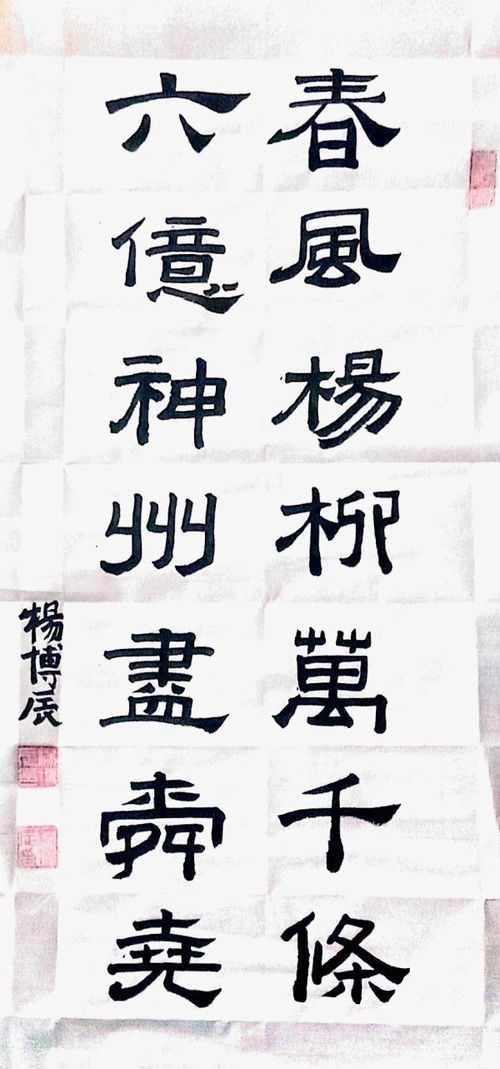 春風楊柳萬千條
六億神州盡舜堯
楊博辰